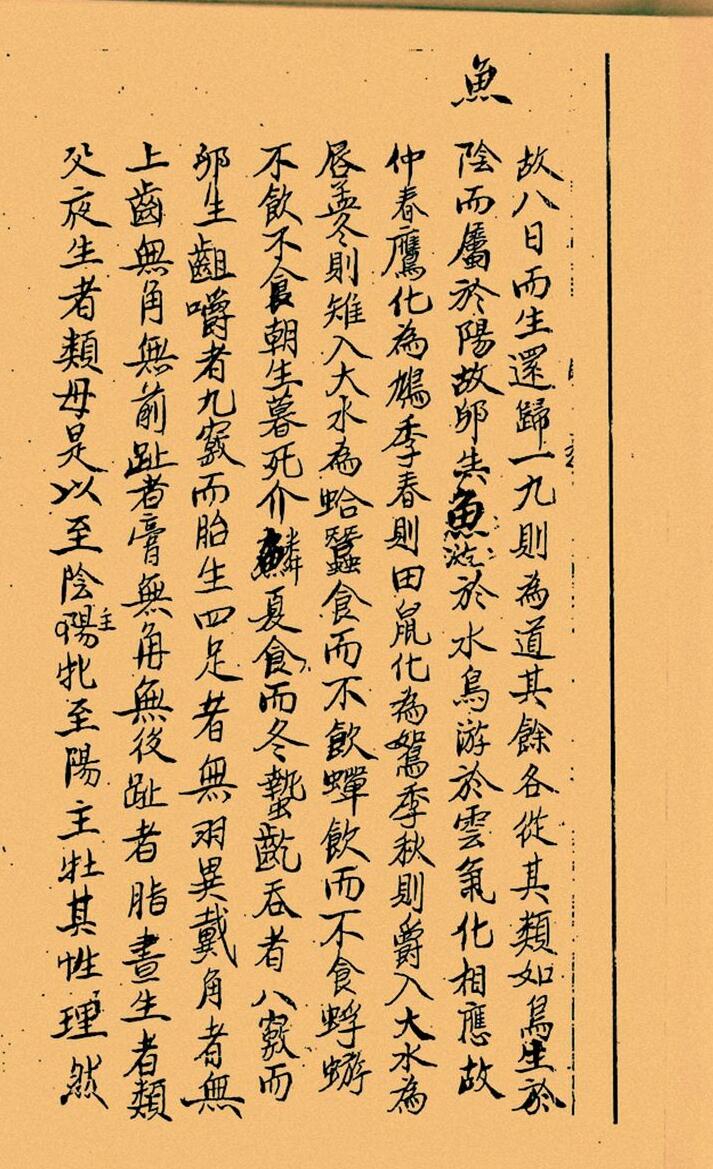 魚
故八日而生還歸一九則為道其餘各從其類如鳥生於
陰而屬於陽故卵生魚游於水鳥游於雲氣化相應故
仲春鷹化為鳩季春則田鼠化為鴽季秋則爵入大水為
唇孟冬則雉入大水為蛤蠶食而不飲蟬飲而不食蜉蝣
不飲不食朝生暮死介鱗夏食而冬蟄齕吞者八竅而
卵生齟嚼者九竅而胎生四足者無羽異戴角者無
上齒無角無前趾者膏無角無後趾者脂晝生者類
父夜生者類母是以至陰主陽牝至陽主牡其性理然